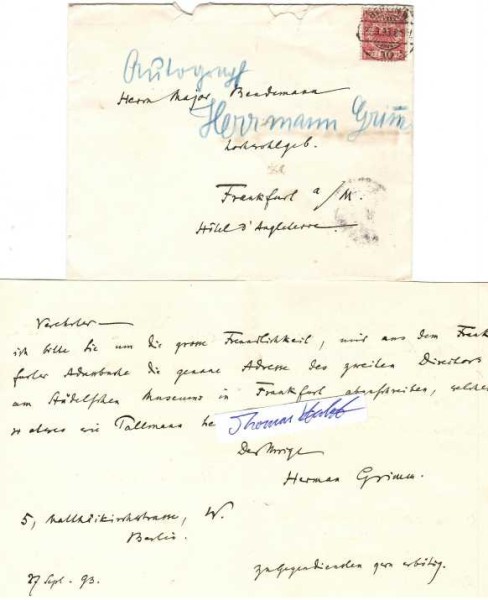 Autograph
Herrn Major Bendemann
Herrmann Grimm
hochwohlgeb.
Frankfurt a/M.
Hôtel d'Angleterre
Verehrter
ich bitte Sie um die grosse Freundlichkeit, mir aus dem Frank
furter Adressbuche die genaue Adresse des zweiten Directors
am Städelschen Museums in Frankfurt abzuschreiben, welcher
so etwas wie Tallmann
Thomas
Der Ihrige
Herman Grimm.
5, Matthäikirchstrasse, W.
Berlin.
27 Sept. 93.
zu Gegendiensten gern erbötig.